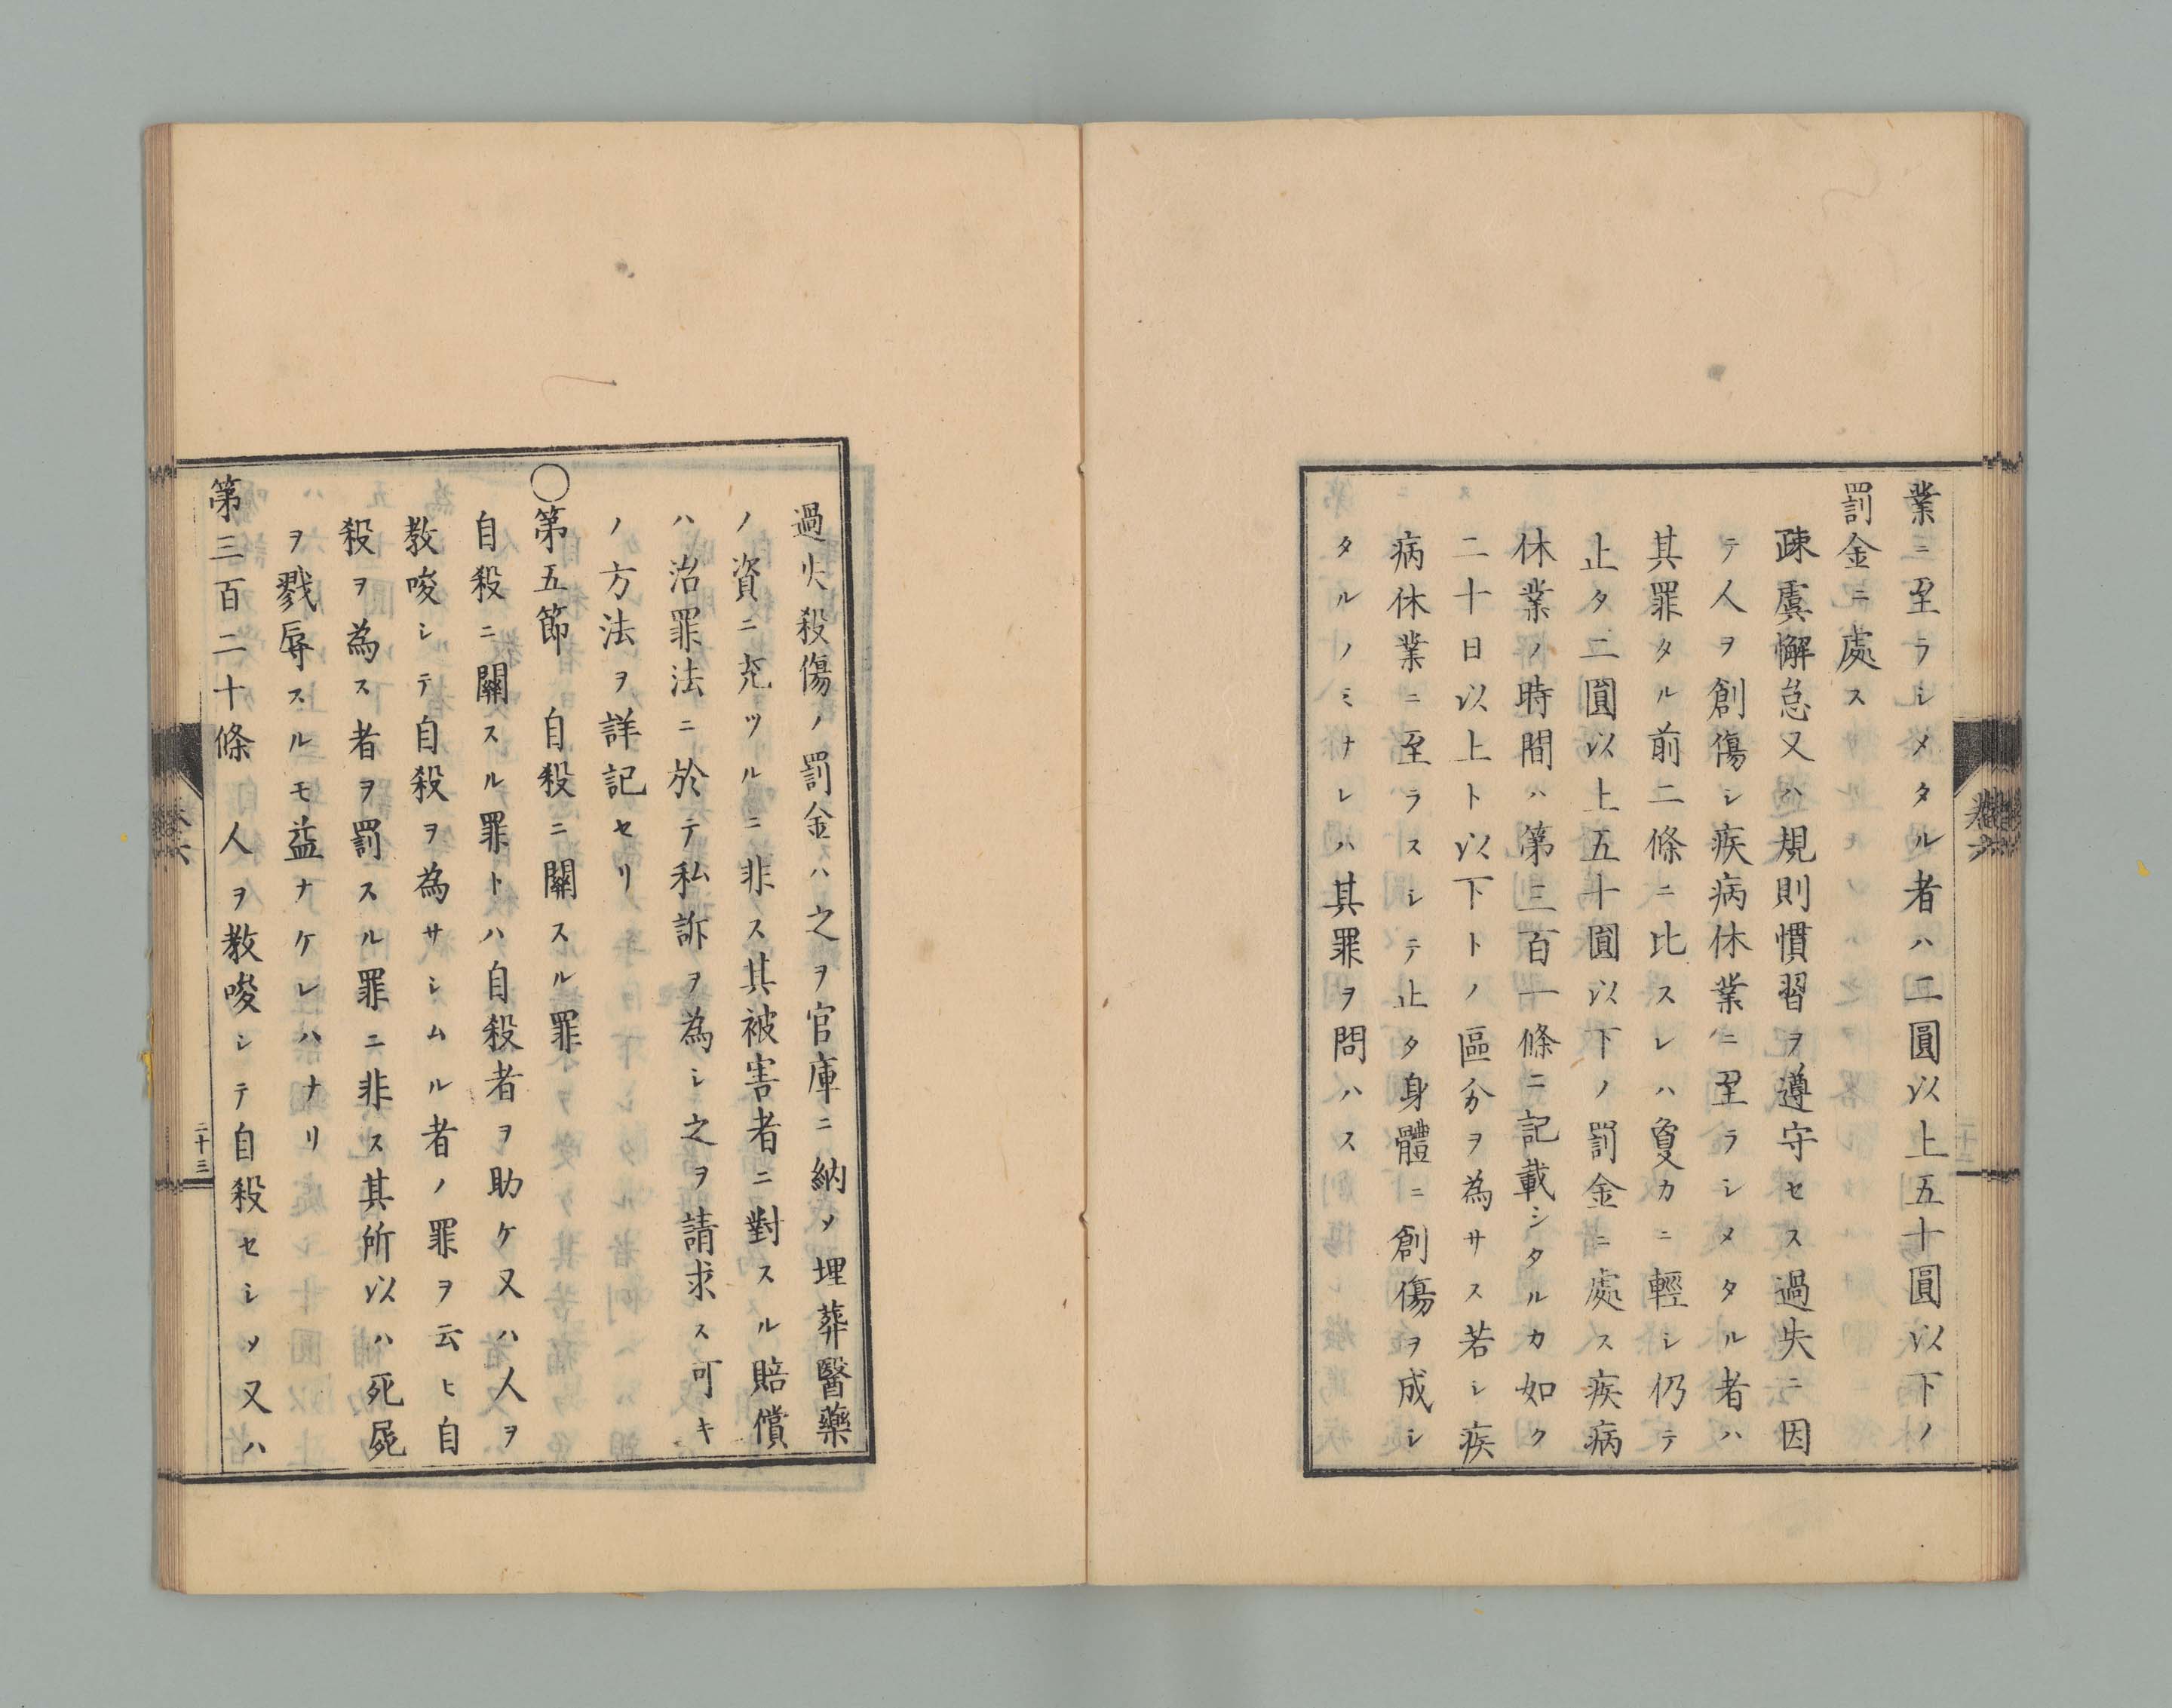 業ニ至ラシメタル者ハ二圓以上五十圓以下ノ
罰金ニ處ス
疎虞懈怠又ハ規則慣習ヲ遵守セス過失ニ因
テ人ヲ創傷シ疾病休業ニ至ラシメタル者ハ
其罪タル前二條ニ比スレハ敻カニ輕シ仍テ
止タ二圓以上五十圓以下ノ罰金ニ處ス疾病
休業ノ時間ハ第三百一條ニ記載シタルカ如ク
二十日以上ト以下トノ區分ヲ為サス若シ疾
病休業ニ至ラスシテ止タ身體ニ創傷ヲ成シ
タルノミナレハ其罪ヲ問ハス
過失殺傷ノ罰金ハ之ヲ官庫ニ納メ埋葬醫藥
ノ資ニ充ツルニ非ス其被害者ニ對スル賠償
ハ治罪法ニ於テ私訴ヲ為シ之ヲ請求ス可キ
ノ方法ヲ詳記セリ
○第五節 自殺ニ關スル罪
自殺ニ關スル罪トハ自殺者ヲ助ケ又ハ人ヲ
教唆シテ自殺ヲ為サシムル者ノ罪ヲ云ヒ自
殺ヲ為ス者ヲ罰スル罪ニ非ス其所以ハ死屍
ヲ戮辱スルモ益ナケレハナリ
第三百二十條 人ヲ教唆シテ自殺セシメ又ハ
二十三